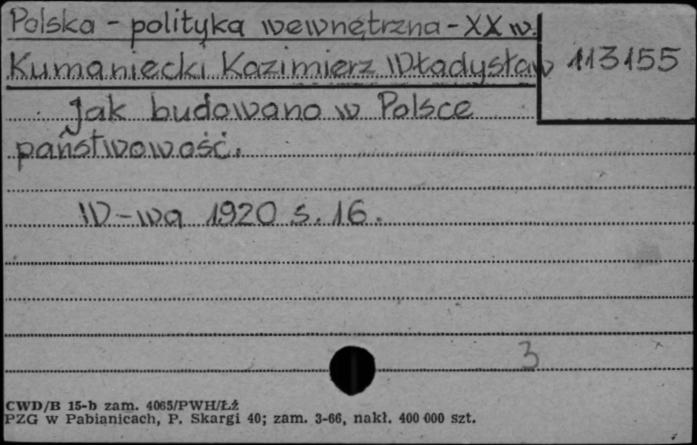 Polska - polityka wewnętrzna - XX w.
Kumaniecki Kazimierz Władysław 113155
Jak budowano w Polsce
państwowość.
W-wa 1920 s. 16.
3
CWD/B 15-b zam. 4065/PWH/ŁŻ
PZG w Pabianicach, P. Skargi 40; zam. 3-66, nakł. 400 000 szt.